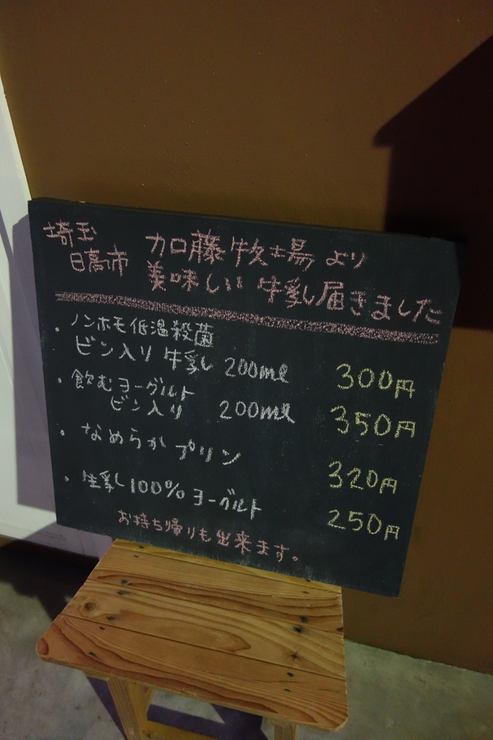 埼玉 加藤牧場より
日高市 美味しい牛乳届きました
・ノンホモ低温殺菌
ビン入り牛乳 200ml 300円
・飲むヨーグルト
ビン入り 200ml 350円
・なめらかプリン 320円
・生乳100%ヨーグルト 250円
お持ち帰りも出来ます。